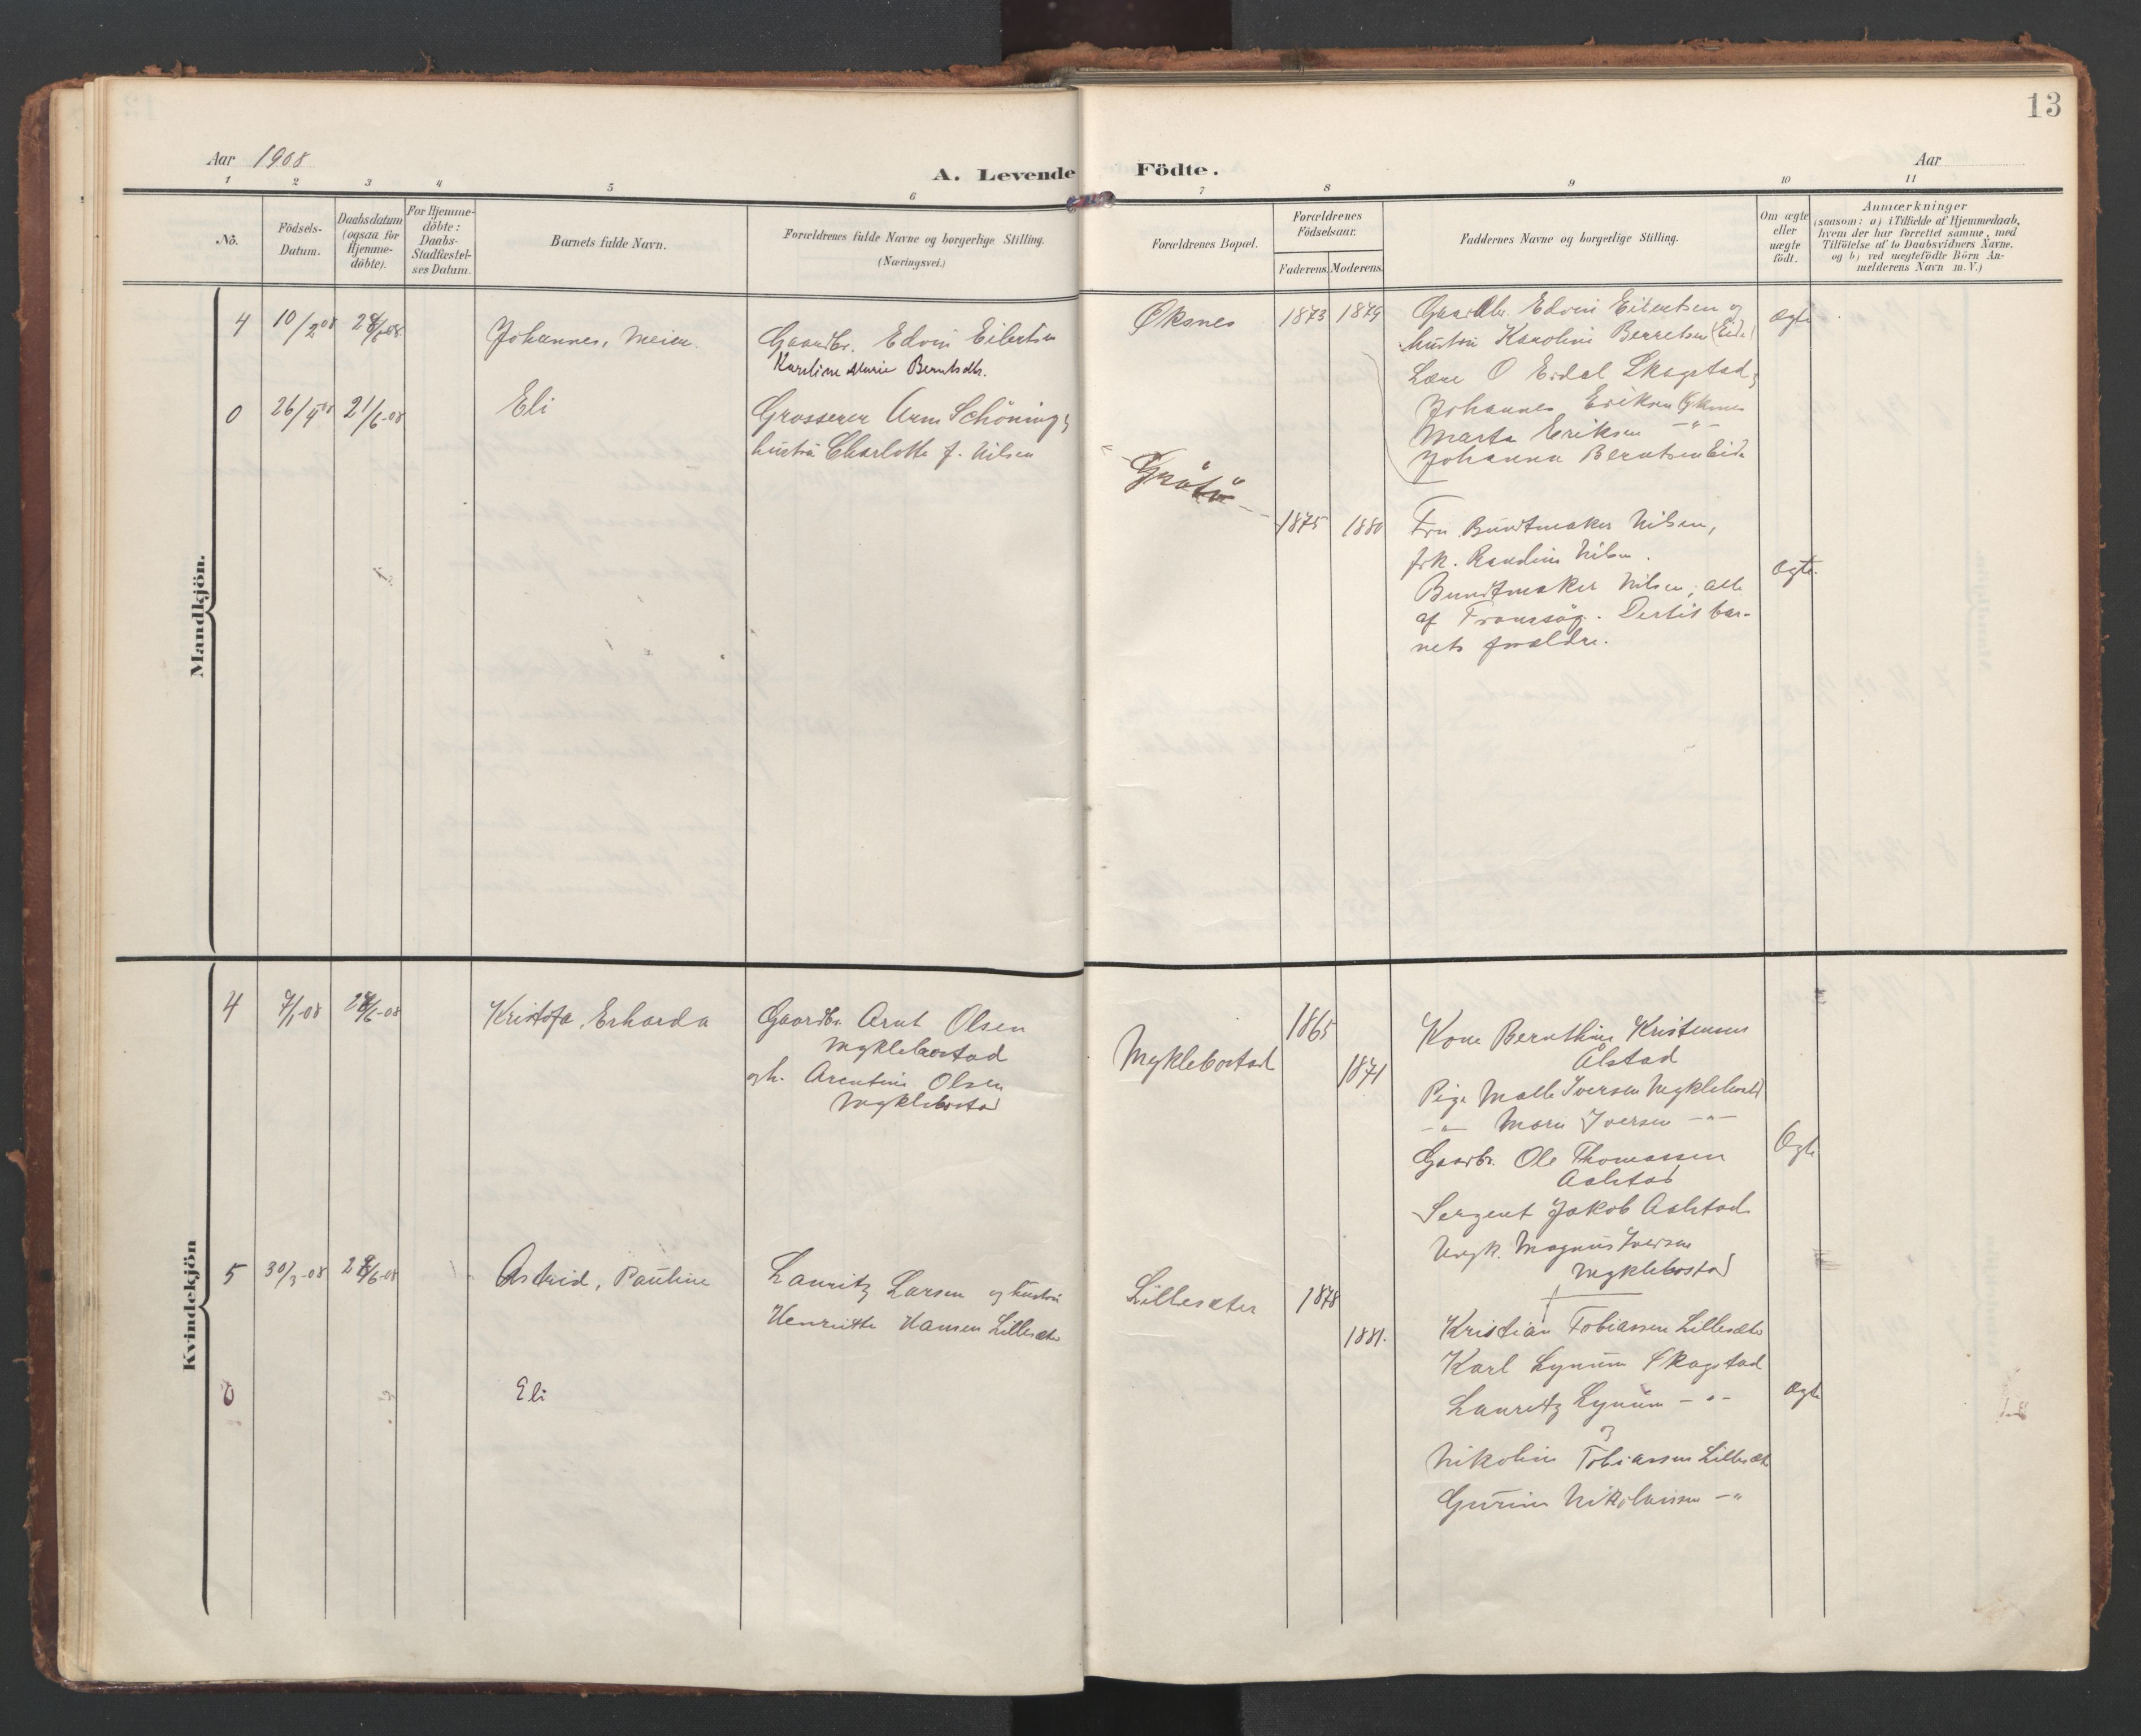 13
Aar 1908
A. Levende Födte.
Aar
1 2 3 4 5 6 7 8 9 10 11
No.
Födsels-
Datum.
Daabsdatum
(ogsaa for
Hjemme-
döbte).
For Hjemme-
döbte:
Daabs-
Stadfæstel-
ses Datum.
Barnets fulde Navn.
Forældrenes fulde Navne og borgerlige Stilling.
(Næringsvei.)
Forældrenes Bopæl.
Forældrenes
Födselsaar.
Faderens.
Moderens.
Faddernes Navne og borgerlige Stilling.
Om ægte
eller
uægte
födt.
Anmærkninger
(saasom: a) i Tilfælde af Hjemmedaab,
hvem der har forrettet samme, med
Tilföielse af to Daabsvidners Navne.
og b) ved uægtefödte Börn An-
melderens Navn m. V.)
Mandkjön.
4 10/2 08 Johannes, Meier.
Gaardbr. Edvin Eilertsen
Karoline Marie Berntsdtr.
Øksnes
1873 1879
Gaardbr. Edvin Eilertsen og
hustru Karoline Berntsen (Eide)
O Eidal Skagstad,
Johannes Eriksen Øksnes
Marta Eriksen -"-
Johanna Berntsen Eide
Ægte
0 26/4 08 21/6-08 Eli
Grosserer Arnt Schöning &
hustru Charlotte J. Nilsen
Gråtö
1875 1880
Fru Buntmaker Nilsen,
frk. Randine Nilsen.
Buntmaker Nilsen, alle
af Tromsø. Dertil bar-
nets forældre.
Ægte.
Kvindekjön
4 7/1-08 Kristofa, Erharda
Gaardbr. Arnt Olsen
Myklebostad
og h. Arentine Olsen
Myklebostad
Myklebostad
1865
1871
Kone Bernthine Kristensen
Ålstad
Pige Malle Iversen Myklebostad
-"- Marie Iversen -"-
Gaardbr. Ole Thomassen
Aalstad
Sergent Jakob Aalstad
Ungk. Magnus Iversen
Myklebostad
Ægte
5 30/3-08 Astrid, Pauline
Lauritz Larsen og hustru
Henriette Hansen Lillesæter
Lillesæter
1878
1881.
Kristian Tobiassen Lillesæter
Karl Lynum Skagstad
Lauritz Lynum -"-
og
Nikoline Tobiassen Lillesæter
Gurine Nikolaisen -"-
Ægte
0 Eli